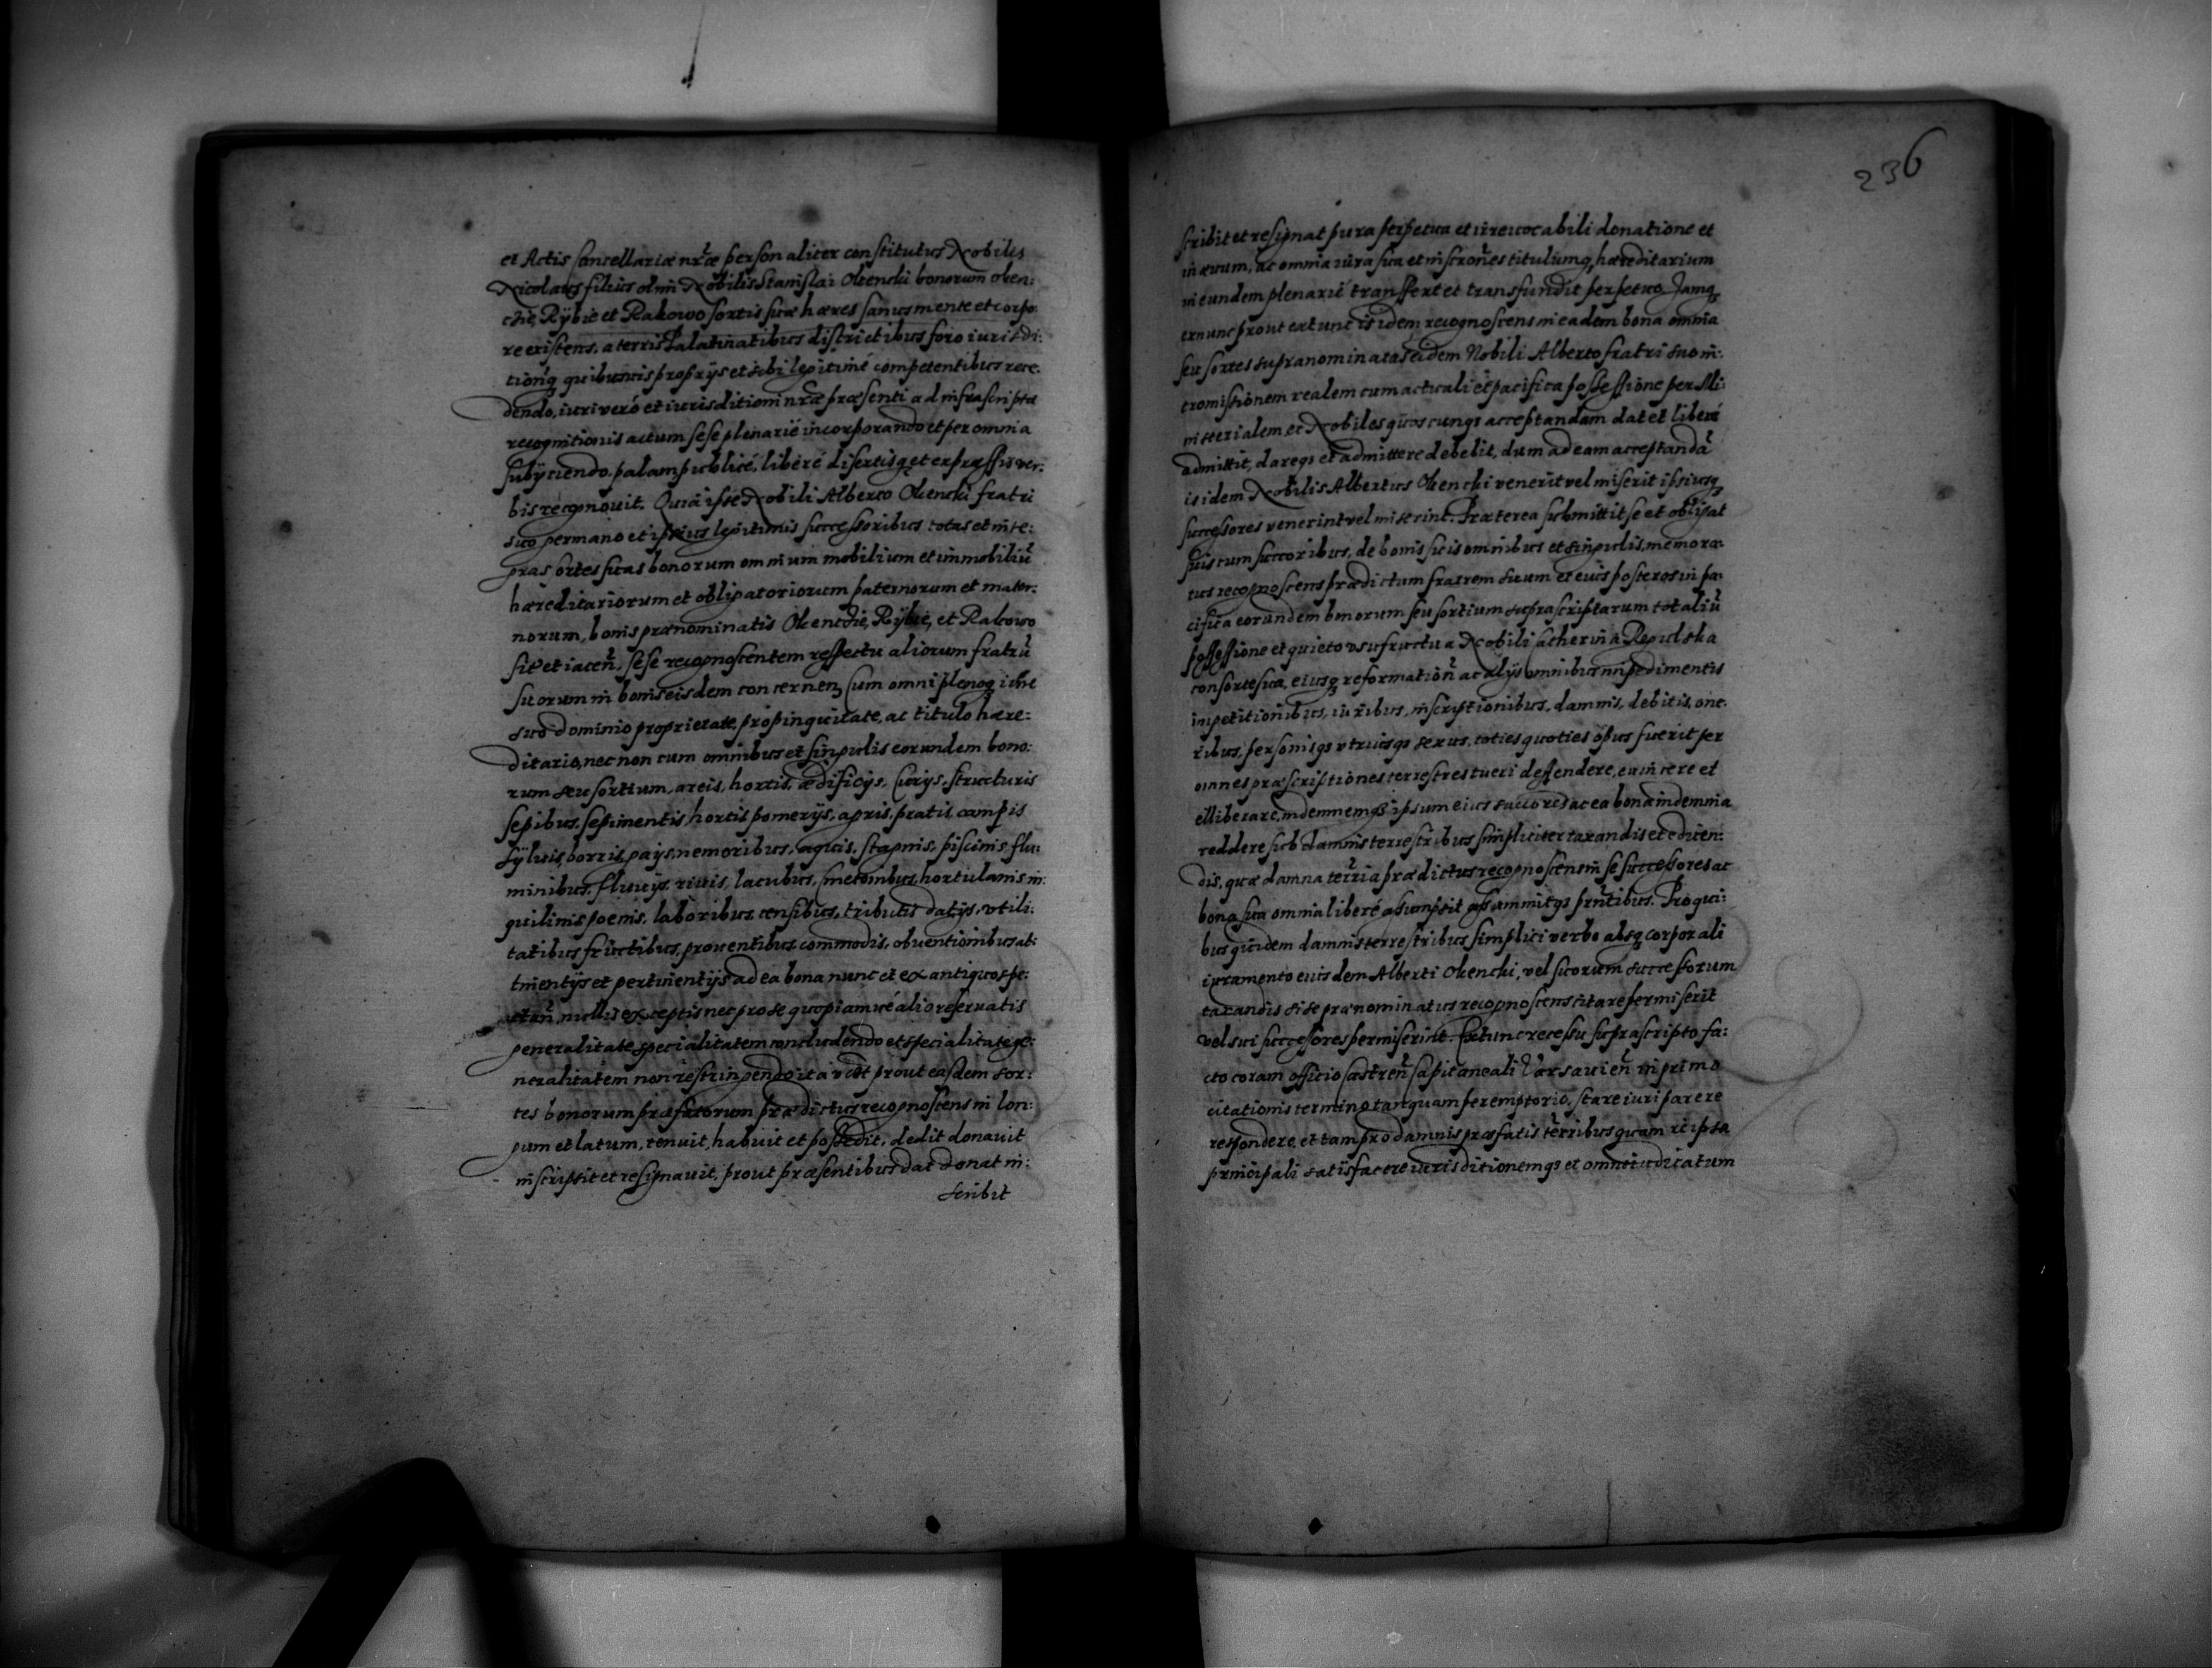 et Actis Cancellariæ nr̃æ personaliter constitutus Nobilis
Nicolaus filius olim Nobilis Stanislai Okencki bonorum Oken:
cKie, Rÿbie et Rakowo sortis suæ hæres sanus mente et corpo
re existens, a terris Palatinatibus districtibus foro iurisdi:
tionq; quibusuis proprys et sibi legitimé competentibus rece.
dendo, iuri veró et iurisditioni nr̃æ præsenti ad infrascriptæ
recognitionis actum sese plenarié incorporando et per omnia
subÿciendo, palam publicé, liberé disertisq; et expressis ver:
bis recognouit. Quia ipse Nobili Alberto Okencki fratri
suo germano et ipsius legitimis successoribus totas et inte:
gras sortes suas bonorum omnium mobilium et immobiliũ
hæreditariorum et obligatoriorum paternorum et mater:
norum, bonis prænominatis OkencKie, Rÿbie, et Rakowo
sit et iaceñ, sese recognoscentem respectu aliorum fratrũ
suorum in bonis eisdem concerneñ, Cum omni plenoq; iure
suo dominio proprietate, propinquitate, ac titulo hære:
ditario, nec non cum omnibus et singulis eorundem bono:
rum seu sortium, areis, hortis, ædificÿs, Curÿs, structuris
sepibus, sepimentis, hortis pomerÿs, agris, pratis, campis
sÿluis, borris, gaÿs, nemoribus, aquis, stagnis, piscinis, flu:
minibus, fluuÿs, riuis, lacubus, Cmetonibus, hortulanis in:
quilinis poenis, laboribus, censibus, tributis, datÿs, vtili:
tatibus fructibus, prouentibus commodis, obuentionibus at:
tinentÿs et pertinentÿs ad ea bona nunc et ex antiquo spe:
ctañ, nullis exceptis nec pro se quopiamué alio reseruatis
generalitate specialitatem concludendo et specialitate ge:
neralitatem non restringendo ita vti prout easdem sor:
tes bonorum præfatorum prædictus recognoscens in lon:
gum et latum, tenuit, habuit et possedit, dedit donauit
inscripsit et resignauit, prout præsentibus dat donat in:
scribit
236
scribit et resignat pura perpetua et irreuocabili donatione et
in æuum, ac omnia iura sua et inscroñes titulumq; hæreditarium
in eundem plenarié transfert et transfundit perpetuo. Jamq;
exnunc prout extunc is idem recognoscens in eadem bona omnia
seu sortes supranominatas eidem Nobili Alberto fratri suo in:
tromissionem realem cum actuali et pacifica possessione per Mi:
nisterialem et Nobiles quoscunqs acceptandam dat et liberé
admittit, dareqs et admittere debebit, dum ad eam acceptandã
is idem Nobilis Albertus Okencki venerit vel miserit ipsiusq;
successores venerint vel miserint. Præterea submittit se et obligat
suis cum succoribus, de bonis suis omnibus et singulis, memora:
tus recognoscens prædictum fratrem suum et eius posteros in pa:
cifica eorundem bonorum seu sortium suprascriptarum totaliũ
possessione et quieto vsufructu a Nobili Catherina Regulska
consorte sua, eiusq; reformatioñ ac alÿs omnibus impedimentis
inpetitionibus, iuribus, inscriptionibus, damnis, debitis, one.
ribus, personisqs vtriusqs sexus, toties quoties opus fuerit per
omnes præscriptiones terrestres tueri deffendere, euincere et
elliberare, indemnemqs ipsum eius succores ac ea bona indemnia
reddere sub damnis terrestribus simpliciter taxandis et edicen:
dis, quæ damna terr̃ia prædictus recognoscens in se successores ac
bona sua omnia liberé assumpsit assummitqs pr̃ntibus. Pro qui:
bus quidem damnis terrestribus simplici verbo absq; corporali
iuramento eiusdem Alberti Okencki, vel suorum successorum
taxandis si se prænominatus recognoscens citare permiserit
vel sui successores permiserint. Extunc recessu suprascripto fa:
cto coram officio Castreñ Capitaneali Varsauieñ in primo
citationis termino tanquam peremptorio, stare iuri parere
respondere, et tam pro damnis præfatis ter̃ribus quam re ipsa
principali satisfacere iurisditionemqs et omne iudicatum